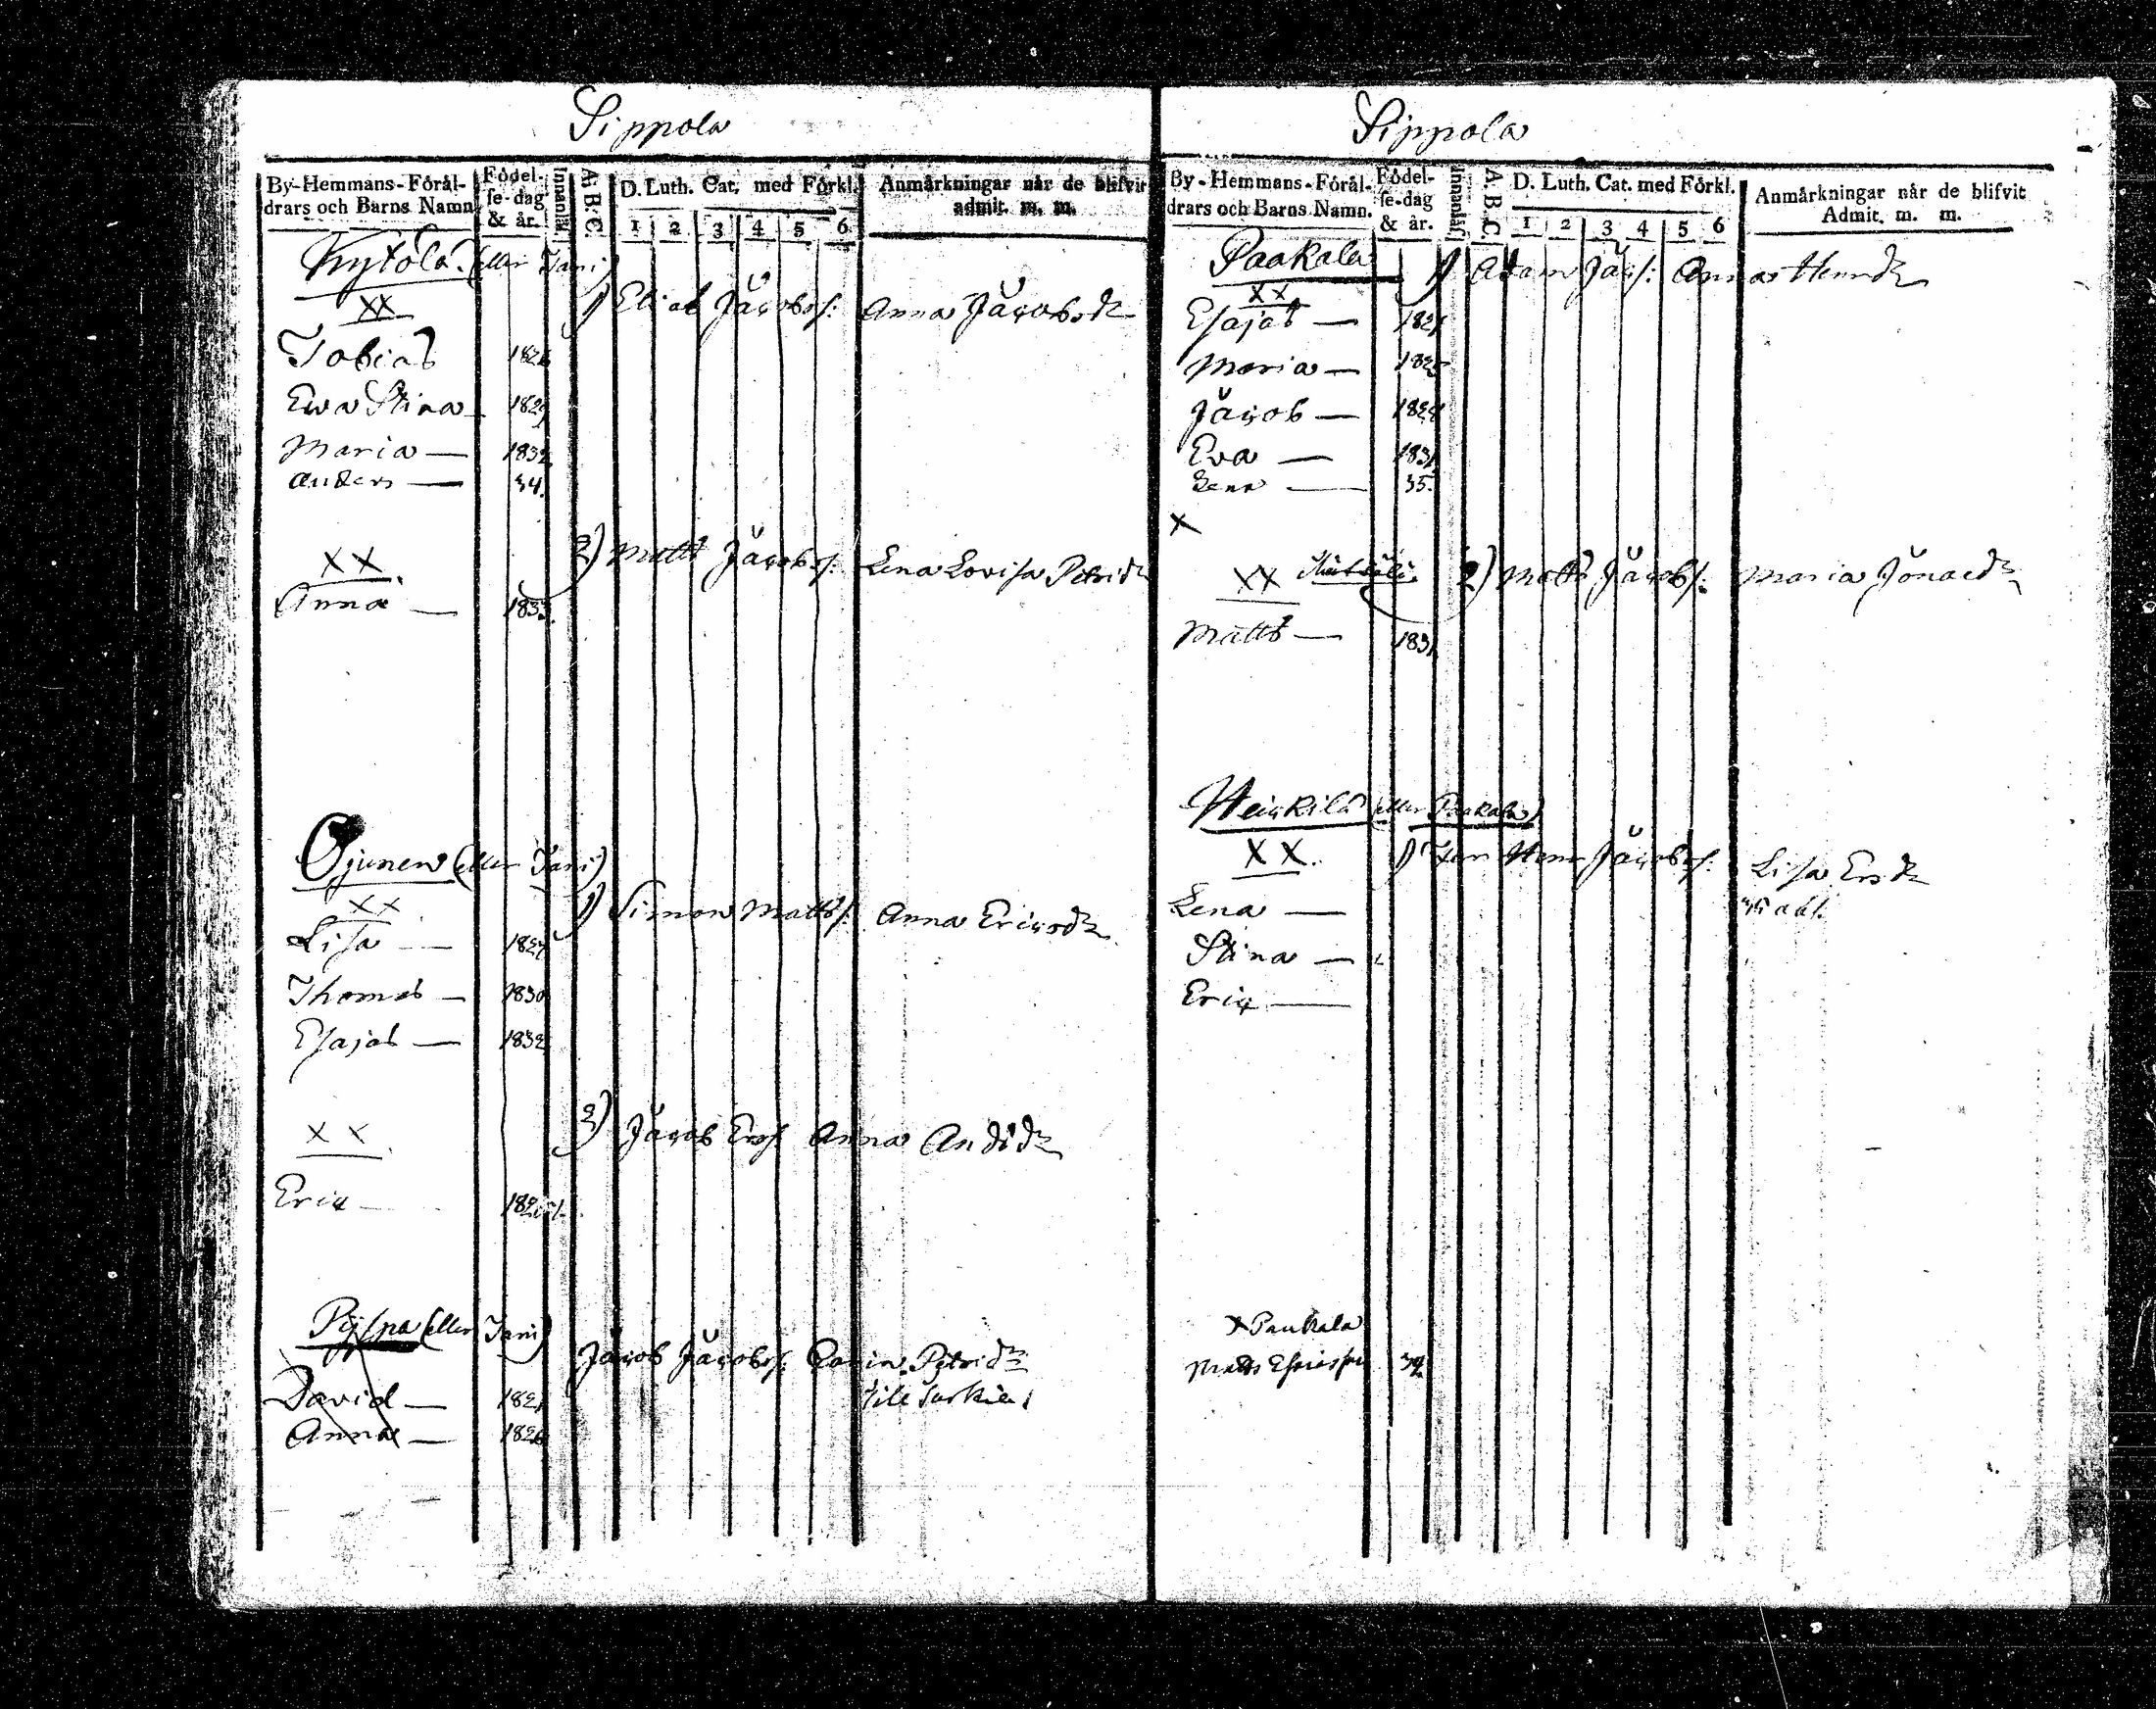 Sippola
By-Hemmans-Föräl-
drars och Barns Namn
Födel-
se-dag
& år.
Innanläs
A.B.C.
D. Luth. Cat. med Förkl.
1 2 3 4 5 6
Anmärkningar når de blifvit
admit. m. m.
Kytölä (eller Jani)
XX
1) Elias Jacobss. Anna Jacobsdr
Tobias
Ewa Stina 1829
Maria — 1832
Anders — 34.
XX
2) Matts Jacobss. Lena Lovisa Petridr
Anna — 1833
Ojunen (eller Jani)
XX
1) Simon Mattss. Anna Ericsdr
Lisa — 1827
Thomas — 1830
Esajas — 1832
XX
2) Jacob Erss. Anna Andsdr
Eric —
(eller Jani)
Jacob Jacobss. Carin Petridr
David — 1821
till
Anna — 1826
Sippola
By-Hemmans-Föräl-
drars och Barns Namn.
Födel-
se-dag
& år.
Innanläs
A.B.C.
D. Luth. Cat. med Förkl.
1 2 3 4 5 6
Anmärkningar når de blifvit
Admit. m. m.
Paakala
1) Adam Jacs. Anna Henrdr
XX
Esajas — 1821
Maria — 1825
Jacob — 1828
Eva — 1831
Lena — 35.
X
XX
2) Matts Jacobs. Maria Jonaedr
Matts — 1831
Heickilä (eller Paakala)
XX.
1) Henr Jacobss. Lisa Ersdr
Lena —
Stina —
Eric —
X Paakala
Matts 32